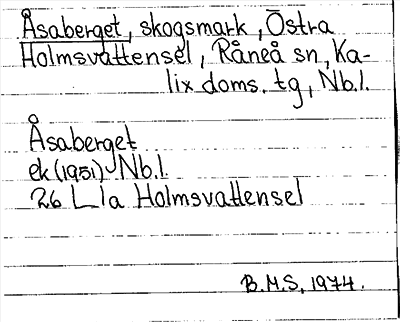 Åsaberget, skogsmark, Östra
Holmsvattensel, Råneå sn, Ka-
lix doms. tg, Nb.l.
Åsaberget
ek (1951) Nb.l.
26 L 1a Holmsvattensel
B.M.S, 1974.